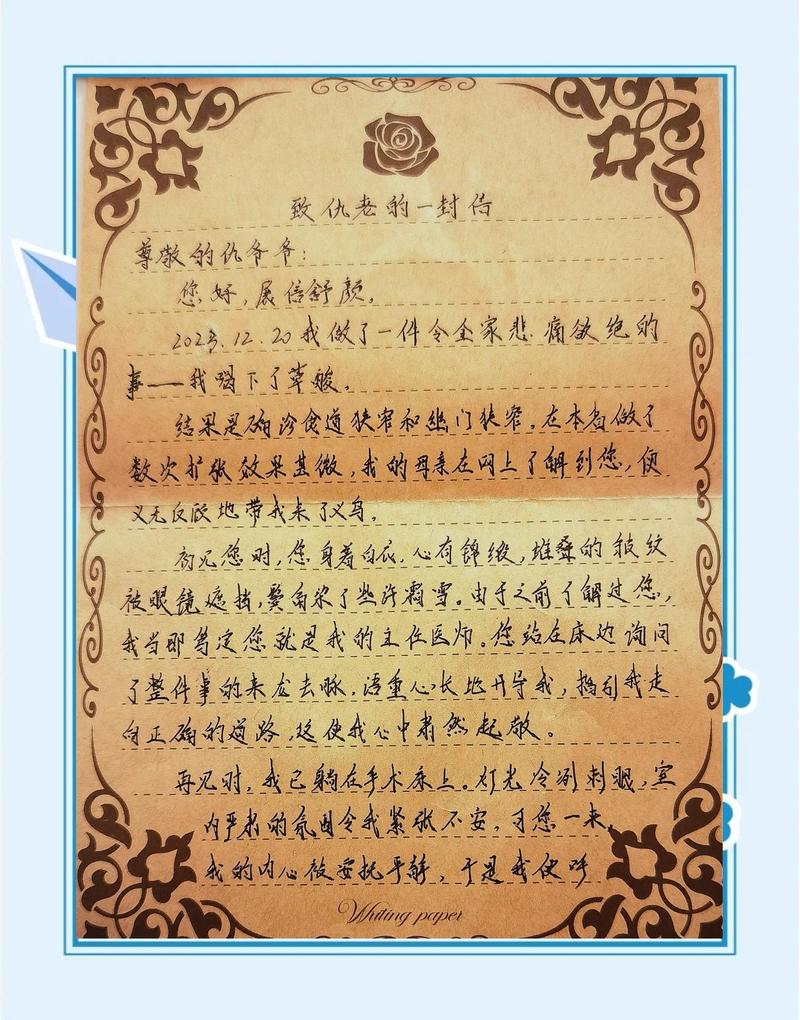 致仇老的一封信
尊敬的仇爷爷：
您好，展信舒颜。
2023.12.20我做了一件令全家悲痛欲绝的
事——我喝下了草酸。
结果是确诊食道狭窄和幽门狭窄。在本省做了
数次扩张效果甚微，我的母亲在网上了解到您，便
义无反顾地带我来了义乌。
初见您时，您身着白衣，心有锦缎，堆叠的皱纹
被眼镜遮挡，鬓角染了些许霜雪。由于之前了解过您，
我当即笃定您就是我的主任医师。您站在床边询问
了整件事的来龙去脉，语重心长地开导我，指引我走
向正确的道路，这使我心中肃然起敬。
再见时，我已躺在手术床上。灯光冷冽刺眼，室
内严肃的氛围令我紧张不安，可您一来，
我的内心被安抚平静，于是我便呼
Writing paper